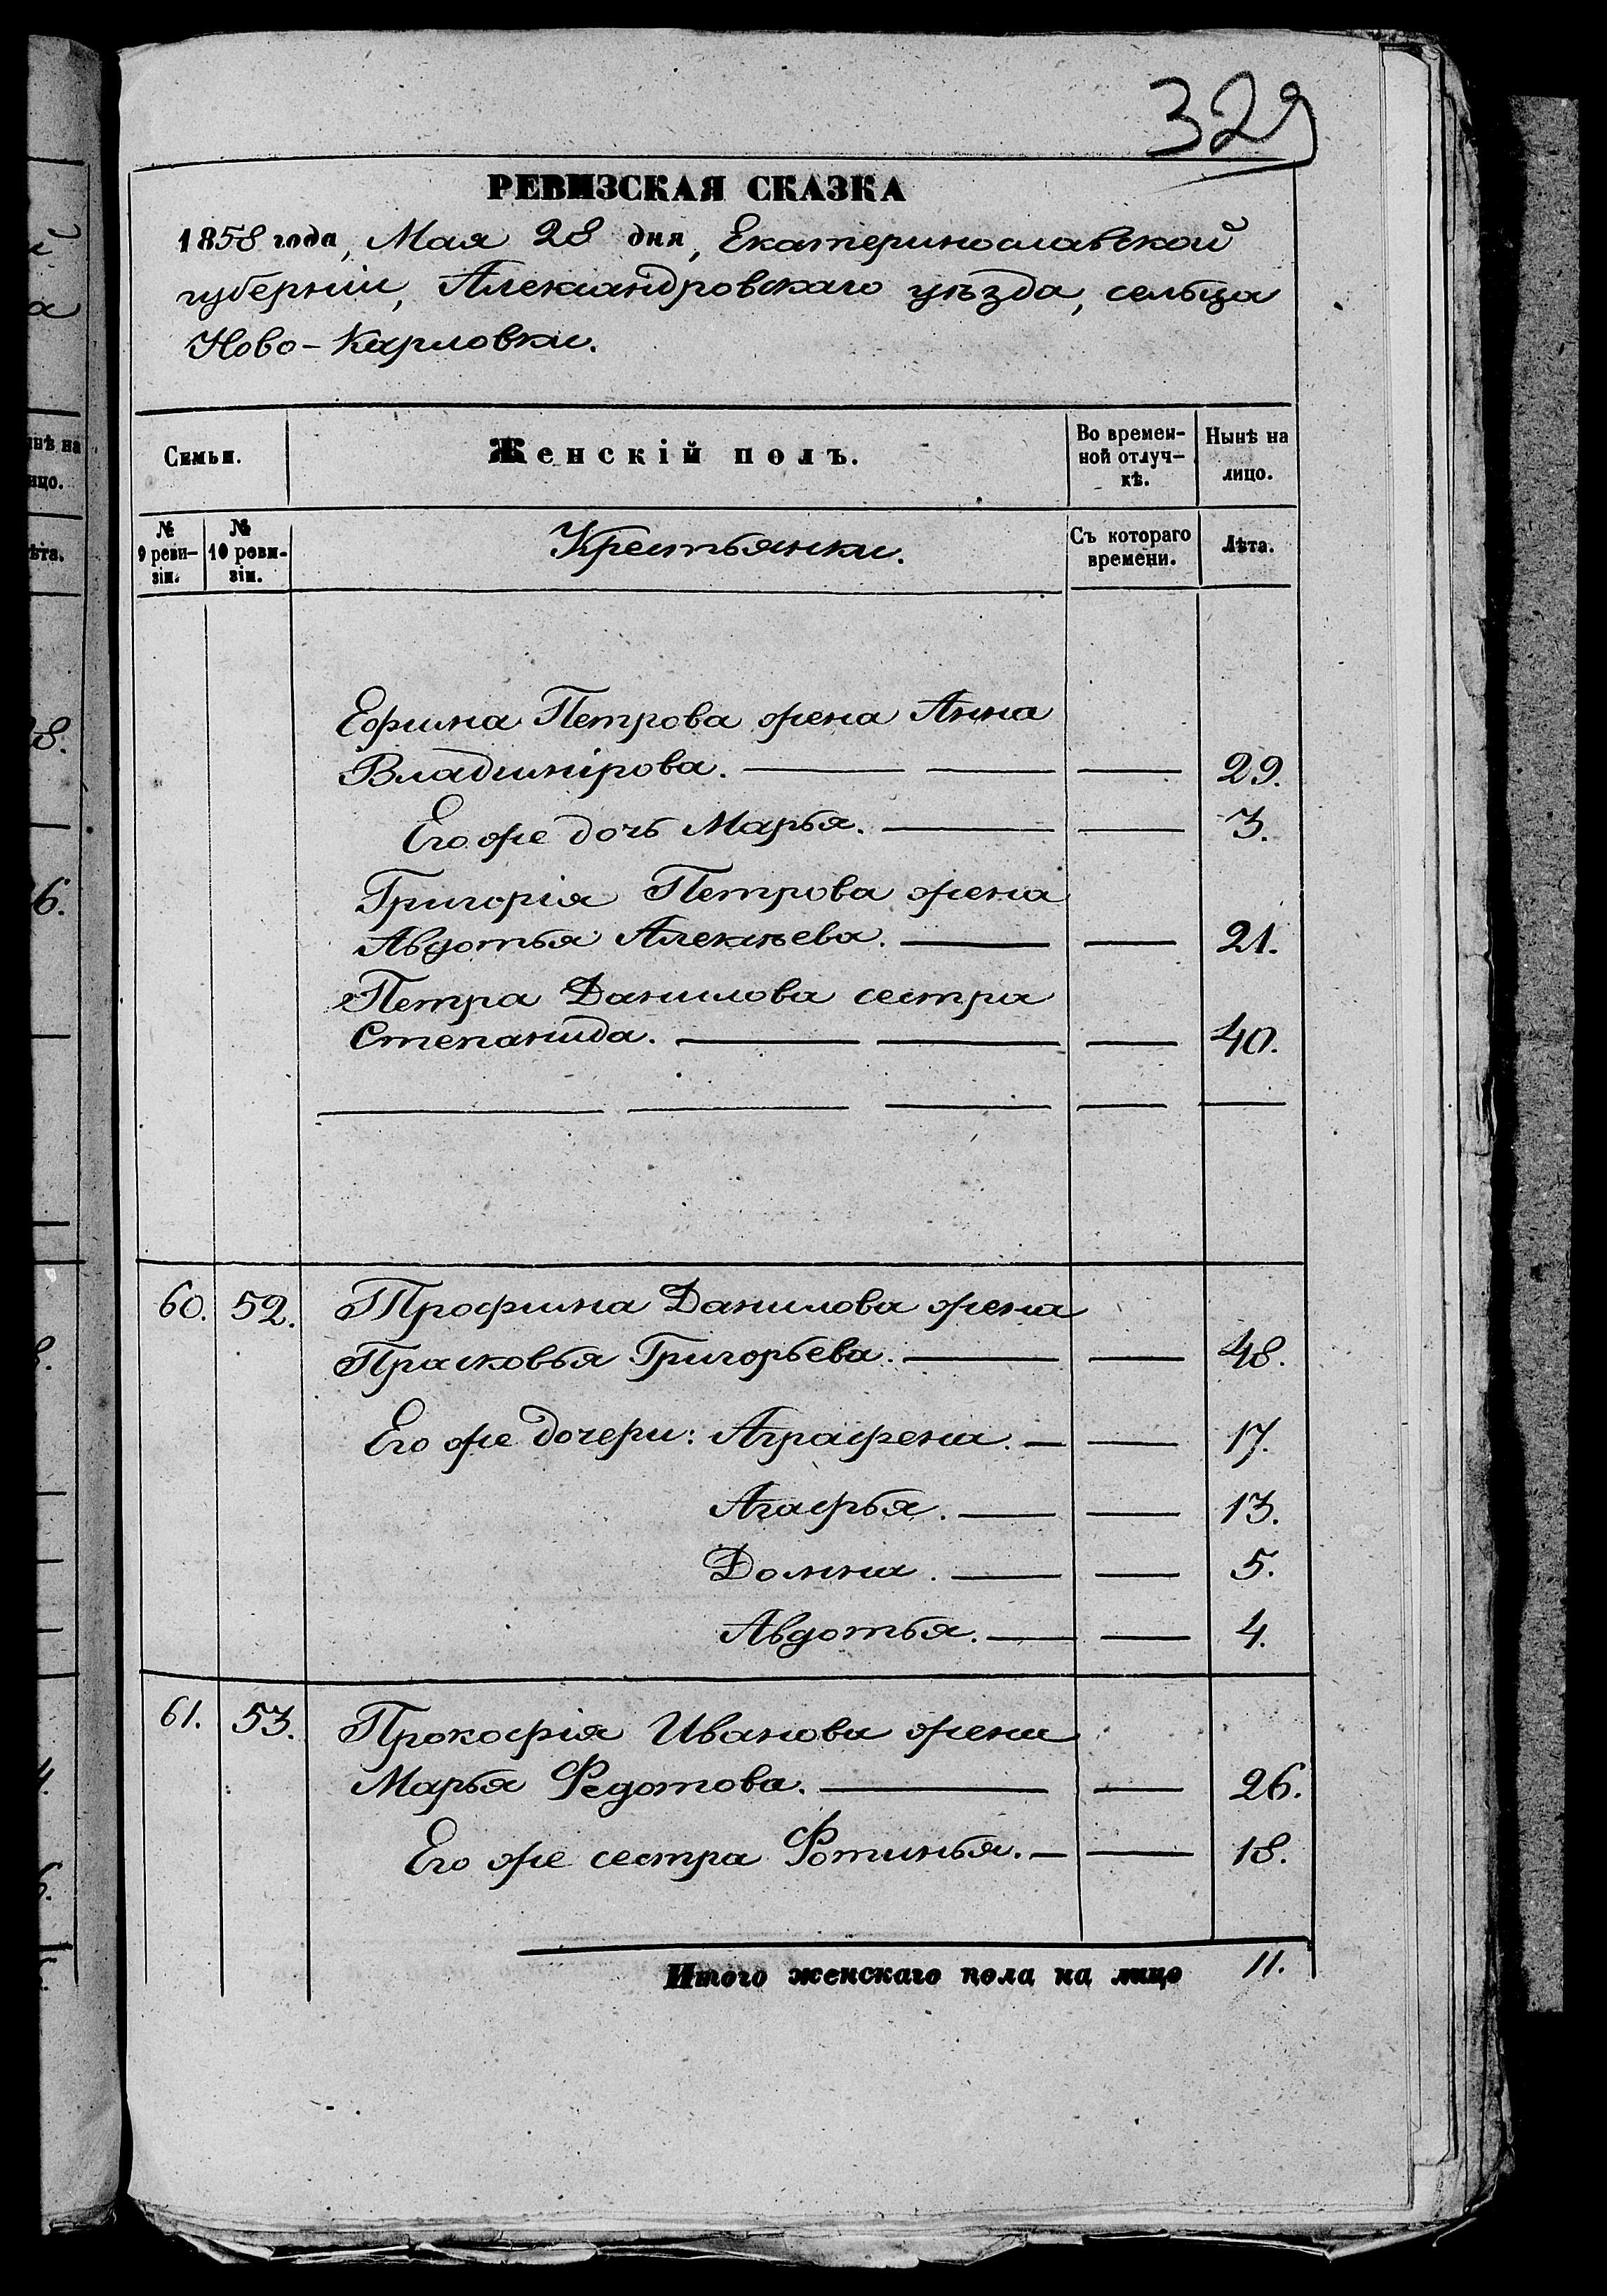 329
РЕВИЗСКАЯ СКАЗКА
1858 года, Мая 28 дня, Екатеринославской
губерніи, Александровскаго уѣзда, сельца
Ново-Карловки.
Семьи.
Женскій полъ.
Во времен-
ной отлуч-
кѣ.
Нынѣ на
лицо.
№
9 реви-
зіи.
№
10 реви-
зіи.
Крестьянки.
Съ котораго
времени.
Лѣта.
Ефима Петрова жена Анна
Владимірова. 29.
Его же дочь Марья. 3.
Григорія Петрова жена
Авдотья Алексѣева. 21.
Петра Данилова сестра
Степанида. 40.
60. 52. Трофима Данилова жена
Прасковья Григорьева. 48.
Его же дочери: Аграфена. 17.
Агафья. 13.
Домна. 5.
Авдотья. 4.
61. 53. Прокофія Иванова жена
Марья Федотова. 26.
Его же сестра Фотинья. 18.
Итого женскаго пола на лицо 11.